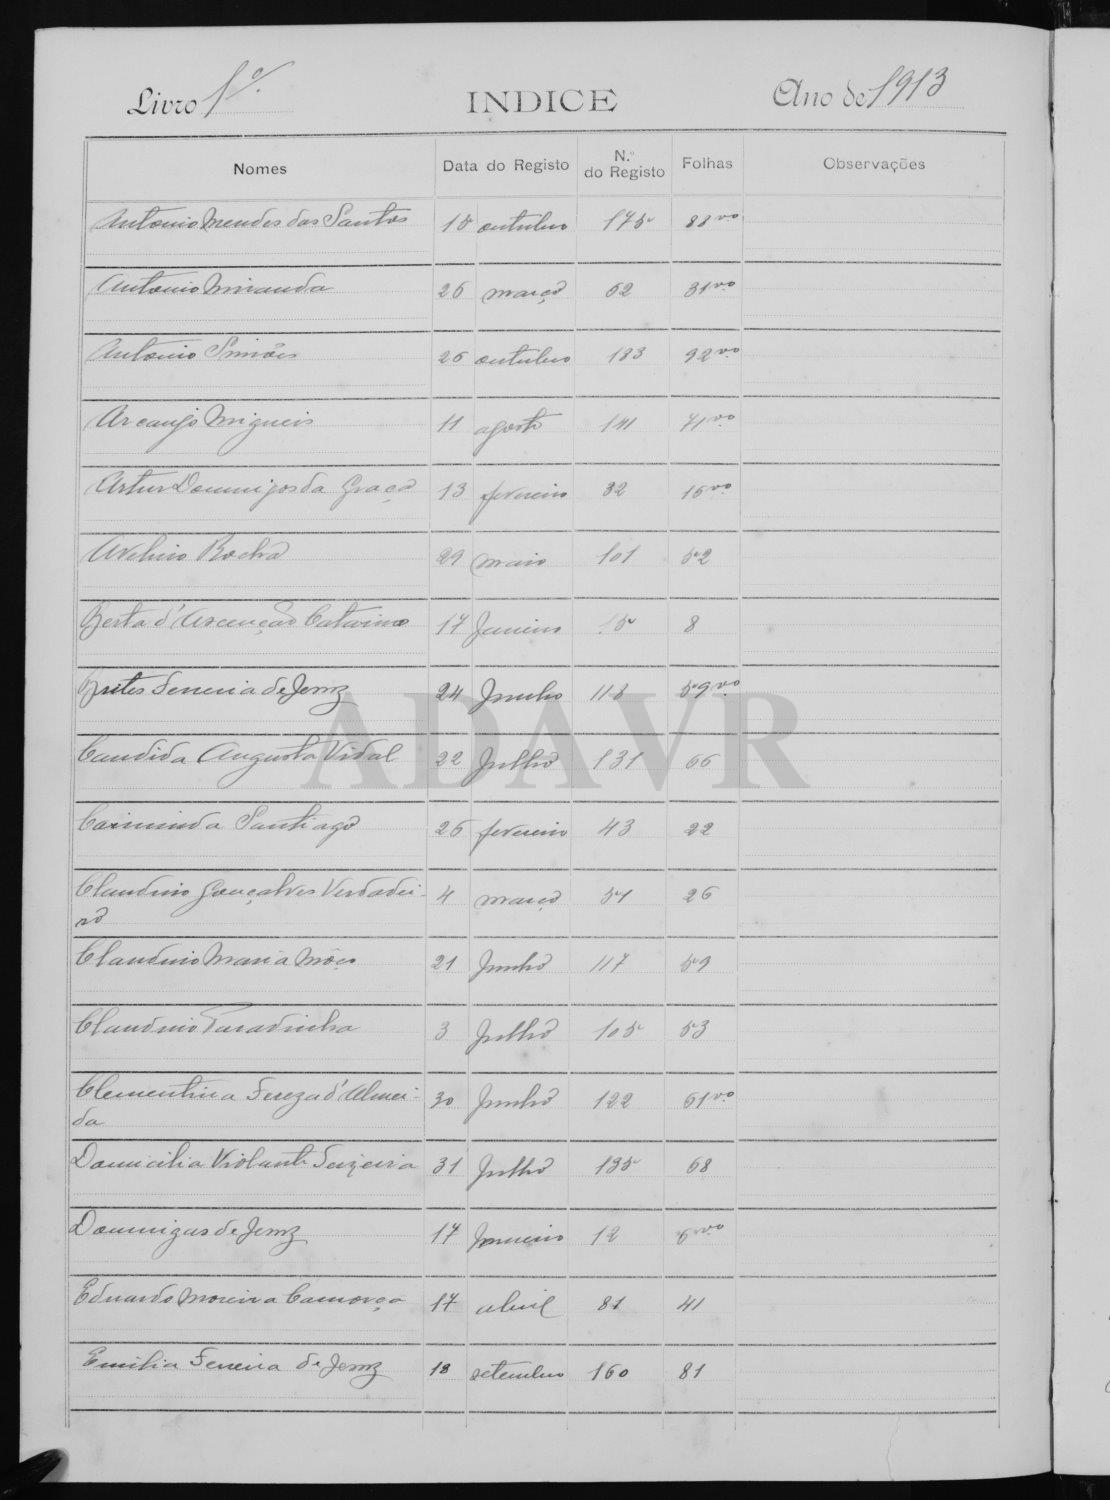 Livro 1º. INDICE Ano de 1913
Nomes Data do Registo N.º do Registo Folhas Observações
Antonio Mendes dos Santos 15 outubro 175 88 vo
Antonio Miranda 26 março 62 31 vo
Antonio Simões 26 outubro 183 92 vo
Arcanjo Migueis 11 agosto 141 71 vo
Artur Domingos da Graça 13 fevereiro 32 16 vo
Avelino Rocha 29 maio 101 52
Berta d'Ascenção Catarino 17 Janeiro 15 8
Brites Ferreira de Jesus 24 Junho 118 59 vo
Candida Augusta Vidal 22 Julho 131 66
Carminda Santiago 26 fevereiro 43 22
Claudino Gonçalves Verdadei-
ro 4 março 51 26
Claudino Maria Mões 21 Junho 117 59
Claudino Paradinha 3 Julho 105 53
Clementina Tereza d'Almei-
da 30 Junho 122 61 vo
Domicilia Violante Teixeira 31 Julho 135 68
Domingas de Jesus 17 Janeiro 12 6 vo
Eduardo Moreira Camorça 17 abril 81 41
Emilia Ferreira de Jesus 18 setembro 160 81
ADAVR